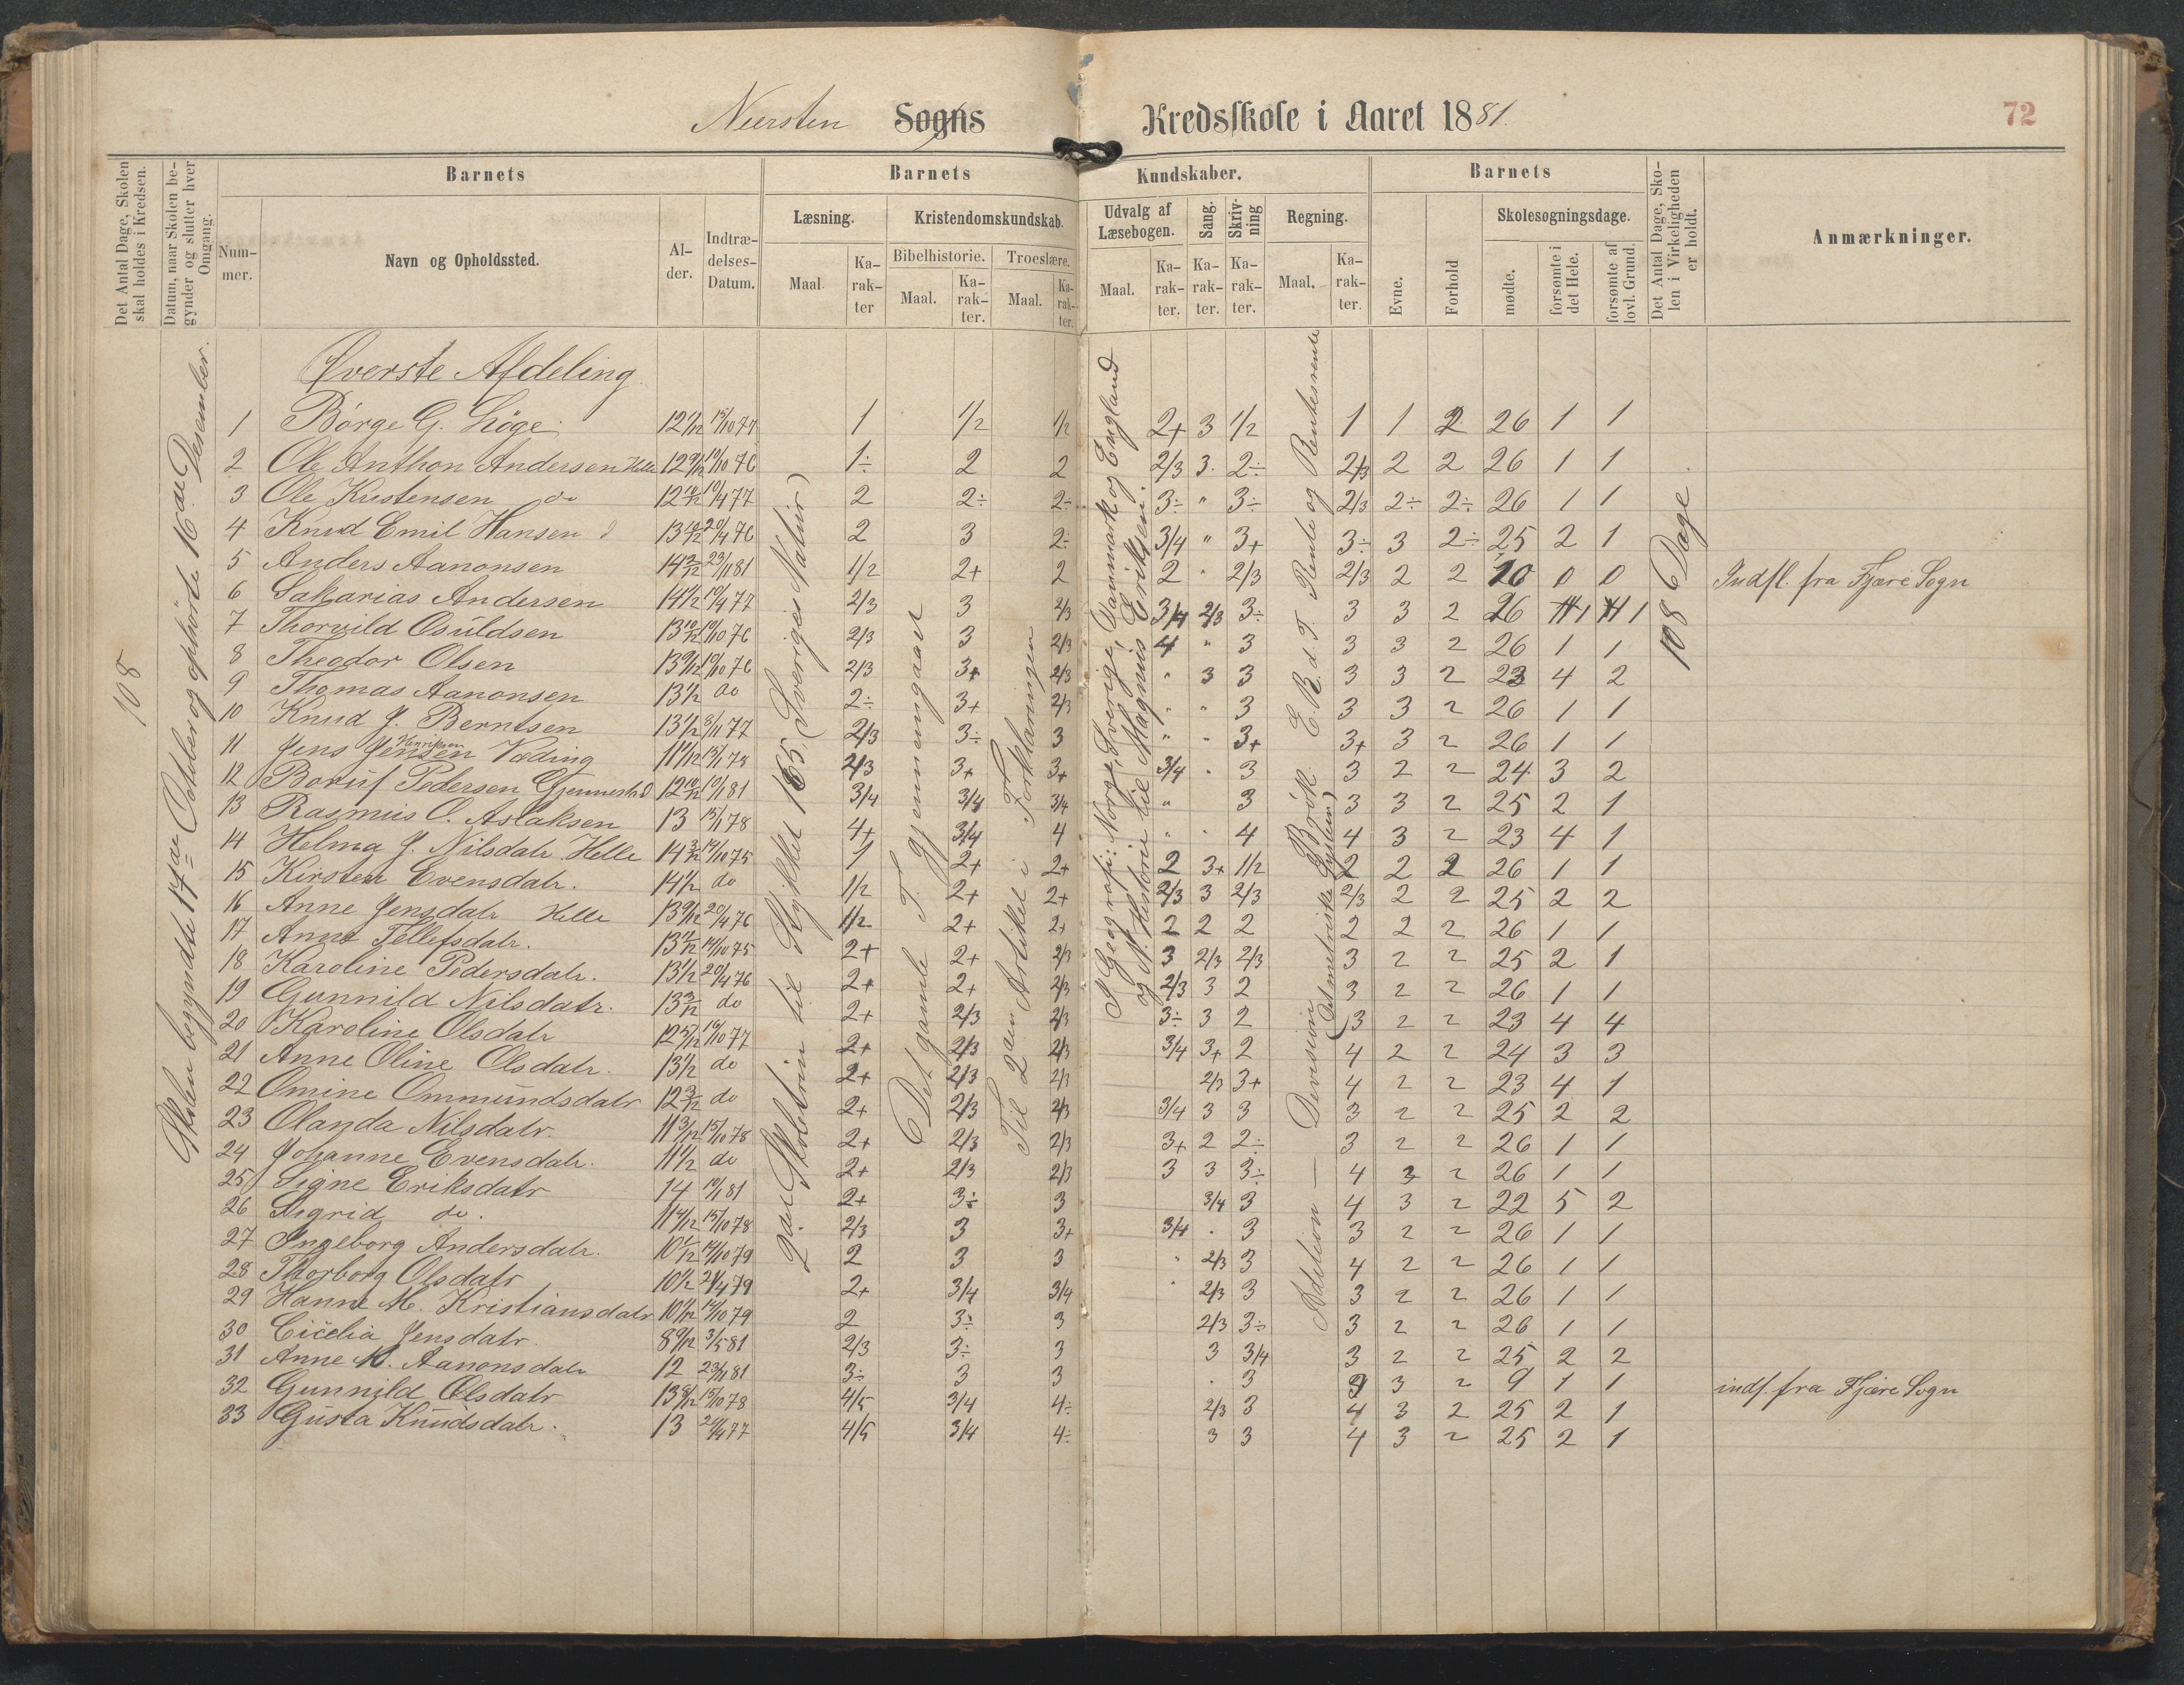 Neersten Sogns Kredsskole i Aaret 1881.
72
Det Antal Dage, Skolen skal holdes i Kredsen.
Datum, naar Skolen begynder og slutter hver Omgang.
Barnets
Nummer.
Navn og Opholdssted.
Alder.
Indtrædelses-Datum.
Barnets Kundskaber.
Læsning.
Maal.
Karakter
Kristendomskundskab.
Bibelhistorie.
Maal.
Karakter.
Troeslære.
Maal.
Karakter.
Udvalg af Læsebogen.
Maal.
Karakter.
Sang.
Karakter.
Skrivning
Karakter.
Regning.
Maal.
Karakter.
Barnets
Evne.
Forhold
Skolesøgningsdage.
mødte.
forsømte i det Hele.
forsømte af lovl. Grund.
Det Antal Dage, Skolen i Virkeligheden er holdt.
Anmærkninger.
108
Skolen begyndte 17de October og ophörte 16de Desember.
2den Skoletrin til Stykket 165 (Sveriges Natur)
Det gamle T. gjennemgaaet
Til 2den Artikel i Forklaringen
I Geografi: Norge, Sverige, Danmark og England
og N. Historie til Magnus Eriksen.
Addition — Devision (Det metriske System) Brök. E. R. d. T. Rente og Rentesrente
108 Dage
Øverste Afdeling.
1 Børge G. Høge 12 1/12 15/10 77 1 1/2 1/2 2+ 3 1/2 1 1 2 26 1 1
2 Ole Anthon Andersen Helle 12 9/12 10/10 76 1÷ 2 2 2/3 3. 2÷ 2/3 2 2 26 1 1
3 Ole Kristensen do 12 10/12 10/4 77 2 2÷ 2÷ 3÷ " 3÷ 2/3 2÷ 2÷ 26 1 1
4 Knud Emil Hansen d 13 10/12 20/4 76 2 3 2÷ 3/4 " 3+ 3÷ 3 2÷ 25 2 1
5 Anders Aanonsen 14 3/12 23/11 81 1/2 2+ 2 2 " 2/3 2/3 2 2 10 0 0 Indfl. fra Fjære Sogn
6 Sakarias Andersen 14 1/2 10/4 77 2/3 3 2/3 3/4 2/3 3÷ 3 3 2 26 1 1
7 Thorvild Osuldsen 13 10/12 10/10 76 2/3 3 2/3 4 " 3 3 3 2 26 1 1
8 Theodor Olsen 13 9/12 10/10 76 2/3 3+ 2/3 " 3 3 3 3 2 23 4 2
9 Thomas Aanonsen 13 1/2 do 2÷ 3+ 2/3 " " 3 3 3 2 26 1 1
10 Knud J. Berntsen 13 1/2 8/11 77 2/3 3÷ 3 " " 3+ 3+ 3 2 26 1 1
11 Jens Jensen Henriksen Væding 11 11/12 13/1 78 2/3 3+ 3+ 3/4 " 3 3 2 2 24 3 2
12 Boruf Pedersen Gjennestad 12 10/12 10/1 81 3/4 3/4 3/4 " 3 3 3 2 25 2 1
13 Rasmus O. Aslaksen 13 15/1 78 4+ 3/4 4 " " 4 4 3 2 23 4 1
14 Helma J. Nilsdatr Helle 14 3/12 14/10 75 1 2+ 2+ 2 3+ 1/2 2 2 2 26 1 1
15 Kirsten Evensdatr. 14 1/2 do 1/2 2+ 2+ 2/3 3 2/3 2/3 2 2 25 2 2
16 Anne Jensdatr Helle 13 9/12 20/4 76 1/2 2+ 2+ 2 2 2 2 2 2 26 1 1
17 Anne Tellefsdatr. 13 11/12 14/10 75 2+ 2+ 2/3 3 2/3 2/3 3 2 2 25 2 1
18 Karoline Pedersdatr. 13 1/2 20/4 76 2+ 2+ 2/3 2/3 3 2 3 2 2 26 1 1
19 Gunnild Nilsdatr. 13 3/12 do 2+ 2/3 2/3 3÷ 3 2 3 2 2 23 4 4
20 Karoline Olsdatr 12 5/12 10/10 77 2+ 2/3 2/3 3/4 3+ 2 4 2 2 24 3 3
21 Anne Oline Olsdatr. 13 1/2 do 2+ 2/3 2/3 2/3 3+ 4 2 2 23 4 1
22 Omine Ommundsdatr 12 3/12 do 2+ 2/3 2/3 3/4 3 3 3 2 2 25 2 2
23 Olanda Nilsdatr. 11 3/12 15/10 78 2+ 2/3 2/3 3+ 2 2÷ 3 2 2 26 1 1
24 Johanne Evensdatr. 11 1/2 do 2+ 2/3 2/3 3 3 3÷ 4 3 2 26 1 1
25 Signe Eriksdatr 14 10/1 81 2+ 3÷ 3 3/4 3 4 3 2 22 5 2
26 Sigrid do. 11 4/12 15/10 78 2/3 3 3+ 3/4 . 3 3 2 2 26 1 1
27 Ingeborg Andersdatr. 10 1/12 14/10 79 2 3 3 " 2/3 3 4 2 2 26 1 1
28 Thorborg Olsdatr 10 1/2 21/4 79 2+ 3/4 3/4 " 2/3 3 3 2 2 26 1 1
29 Hanne M. Kristiansdatr 10 11/12 14/10 79 2 3÷ 3 2/3 3÷ 3 2 2 26 1 1
30 Cicelia Jensdatr. 8 9/12 3/5 81 2/3 3÷ 3 3 3/4 3 2 2 25 2 2
31 Anne M. Aanonsdatr 12 23/11 81 3÷ 3 3 . 3 3 3 2 9 1 1 indf. fra Fjære Sogn
32 Gunnild Olsdatr 13 8/12 15/10 78 4/5 3/4 4÷ 2/3 3 4 3 2 25 2 1
33 Gusta Knudsdatr. 13 20/4 77 4/5 3/4 4÷ 3 3 4 3 2 25 2 1